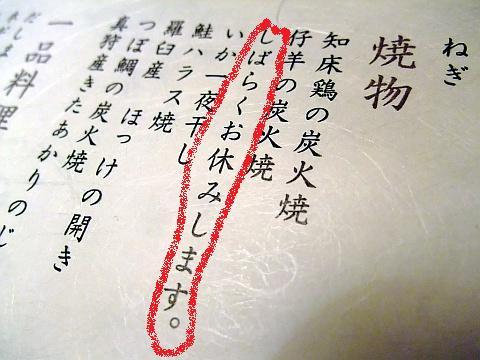 ねぎ
焼物
知床鶏の炭火焼
仔羊の炭火焼
しばらくお休みします。
いか一夜干し
鮭ハラス焼
羅臼産 ほっけの開き
つぼ鯛の炭火焼
真狩産きたあかりのじ
一品料理
だし